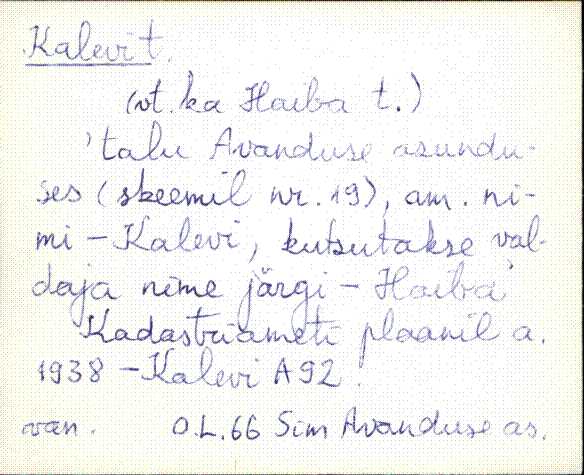 Kalevi t.
(vt. ka Haiba t.)
'talu Avanduse asundu-
ses (skeemil nr. 19), am. ni-
mi – Kalevi, kutsutakse val-
daja nime järgi – Haiba'
Kadastriameti plaanil a.
1938 – Kalevi A92.
van. O.L.66 Sim Avanduse as.